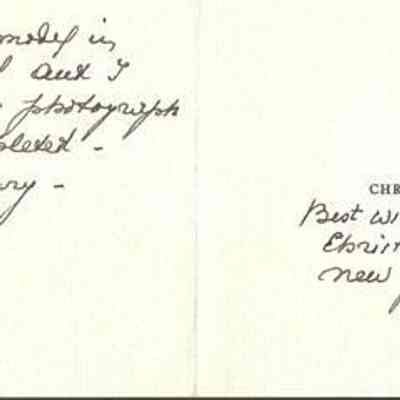 model in
but I
photograph
pleted -
ry -
CHR
Best wi
Christ
new